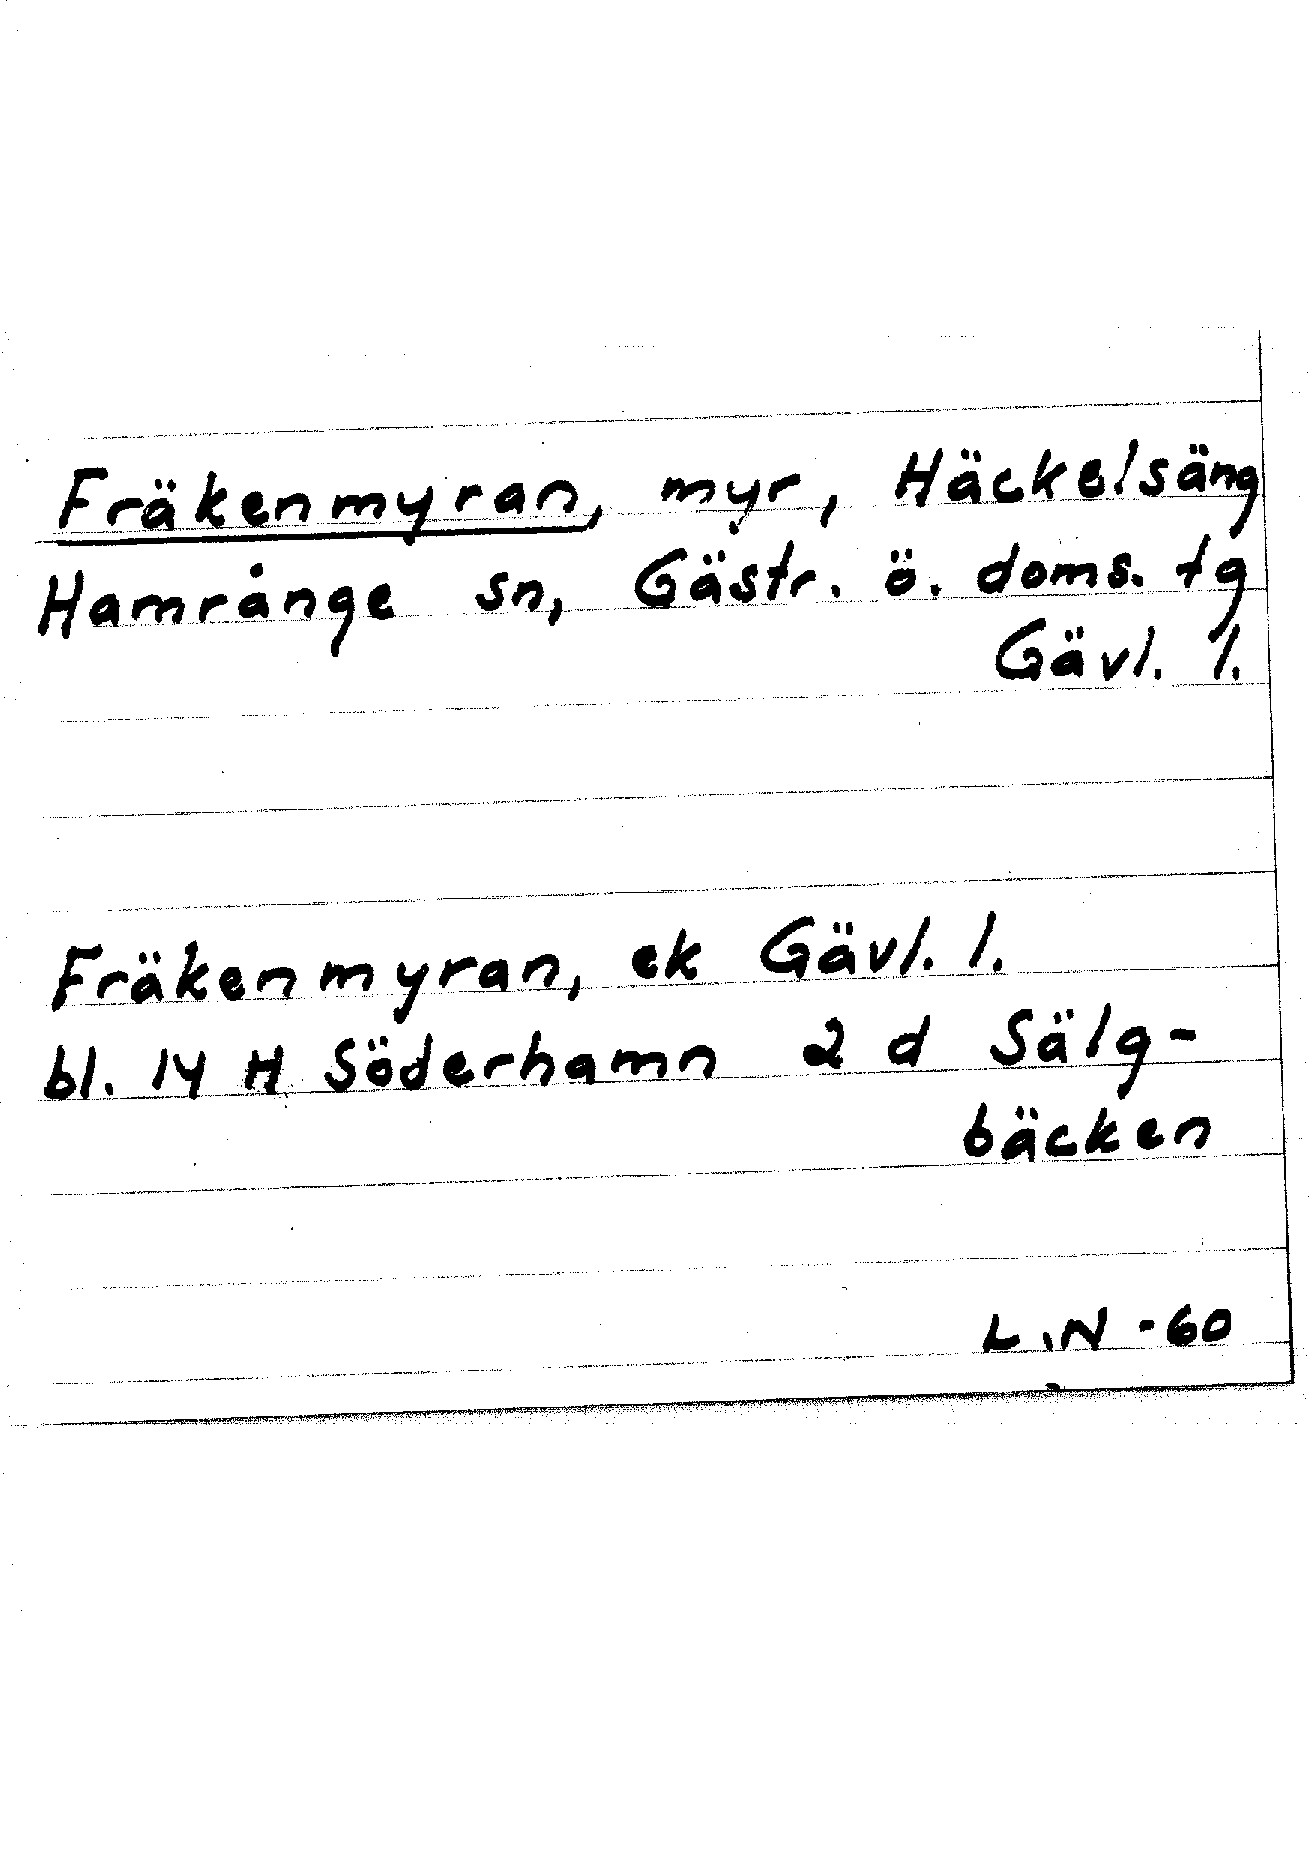 Fräkenmyran, myr, Häckelsäng
Hamrånge sn, Gästr. ö. doms. tg
Gävl. l.
Fräkenmyran, ek Gävl. l.
bl. 14 H Söderhamn 2 d Sälg-
bäcken
L.N -60